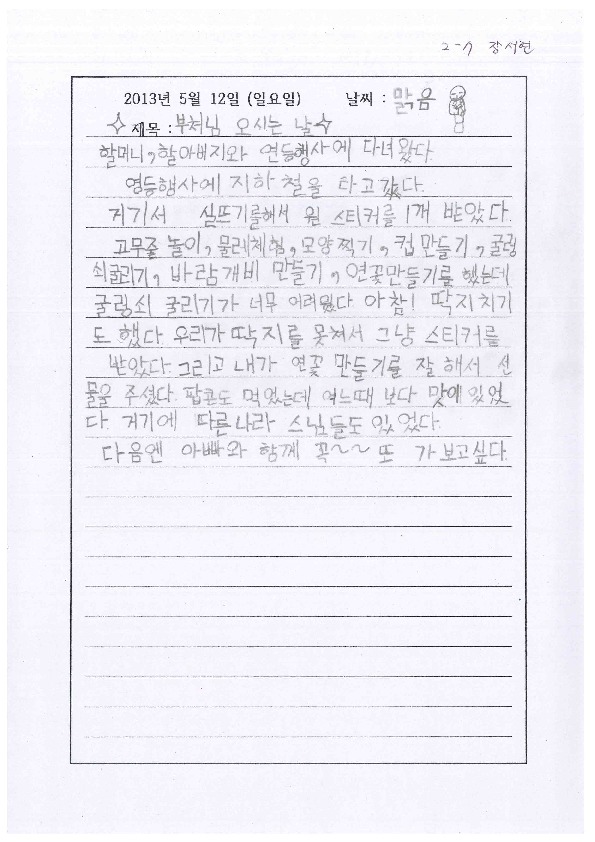 2-7 장서현
2013년 5월 12일 (일요일) 날짜 : 맑음
제목 : 부처님 오시는 날
할머니, 할아버지와 연등행사에 다녀왔다.
연등행사에 지하철을 타고갔다.
거기서 실뜨기를해서 원 스티커를 1개 받았다.
고무줄 놀이, 물레체험, 모양찍기, 컵만들기, 굴렁
쇠굴리기, 바람개비 만들기, 연꽃만들기를 했는데
굴렁쇠 굴리기가 너무 어려웠다 아참! 딱지치기
도 했다. 우리가 딱지를 못쳐서 그냥 스티커를
받았다. 그리고 내가 연꽃 만들기를 잘 해서 선
물을 주셨다. 팝콘도 먹었는데 여느때 보다 맛이있었
다. 거기에 다른나라 스님들도 있었다.
다음엔 아빠와 함께 꼭~~ 또 가보고싶다.